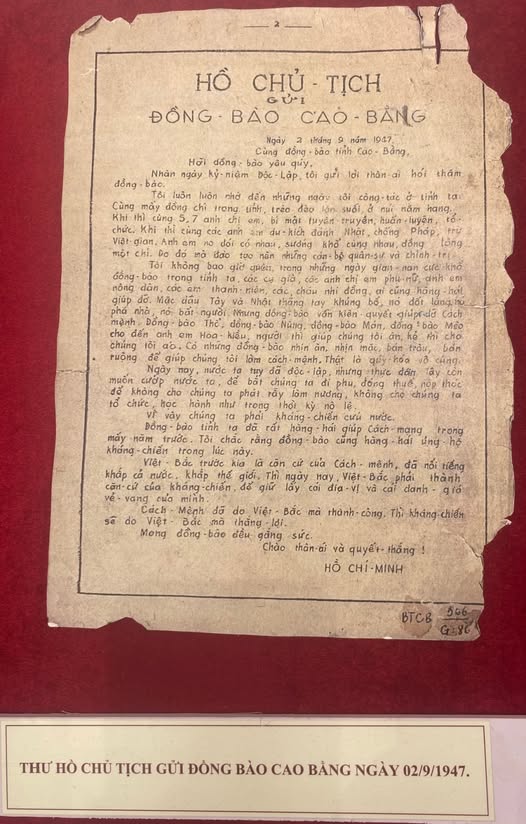 2
HỒ CHỦ-TỊCH
GỬI
ĐỒNG-BÀO CAO-BẰNG
Ngày 2 tháng 9 năm 1947
Cùng đồng-bào tỉnh Cao-Bằng,
Hỡi đồng-bào yêu quý,
Nhân ngày kỷ-niệm Độc-Lập, tôi gửi lời thân-ái hỏi thăm
đồng-bào.
Tôi luôn luôn nhớ đến những ngày tôi công-tác ở tỉnh ta
Cùng mấy đồng chí trong tỉnh, trèo đèo lặn suối, ở núi nằm hang.
Khi thì cùng 5, 7 anh chị em, bí mật tuyên truyền, huấn-luyện, tổ-
chức. Khi thì cùng các anh em du-kích đánh Nhật, chống Pháp, trừ
Việt-gian. Anh em no đói có nhau, sướng khổ cùng nhau, đồng lòng
một chí. Do đó mà đào tạo nên những cán-bộ quân-sự và chính-trị.
Tôi không bao giờ quên, trong những ngày gian-nan cực khổ
đồng-bào trong tỉnh ta, các cụ già, các anh chị em phụ-nữ, anh em
nông dân, các em thanh-niên, các cháu nhi đồng, ai cũng hăng-hái
giúp đỡ. Mặc dầu Tây và Nhật thẳng tay khủng bố, nó đốt làng, nó
phá nhà, nó bắt người. Nhưng đồng-bào vẫn kiên-quyết giúp đỡ Cách
mệnh. Đồng-bào Thổ, đồng-bào Nùng, đồng-bào Mán, đồng-bào Mèo
cho đến anh em Hoa-kiều, người thì giúp chúng tôi ăn, kẻ thì cho
chúng tôi áo. Có những đồng-bào nhịn ăn, nhịn mặc, bán trâu, bán
ruộng để giúp chúng tôi làm cách-mệnh. Thật là quý-hóa vô cùng.
Ngày nay, nước ta tuy đã độc-lập, nhưng thực dân Tây còn
muốn cướp nước ta, để bắt chúng ta đi phu, đóng thuế, nộp thóc
để không cho chúng ta phát rẫy làm nương, không cho chúng ta
tổ chức, học hành như trong thời kỳ nô lệ.
Vì vậy chúng ta phải kháng-chiến cứu nước.
Đồng-bào tỉnh ta đã rất hăng-hái giúp Cách-mạng trong
mấy năm trước. Tôi chắc rằng đồng-bào cũng hăng-hái ủng hộ
kháng-chiến trong lúc này.
Việt-Bắc trước kia là căn cứ của Cách-mệnh, đã nổi tiếng
khắp cả nước, khắp thế giới. Thì ngày nay, Việt-Bắc phải thành
căn-cứ của kháng-chiến, để giữ lấy cái địa-vị và cái danh-giá
vẻ-vang của mình.
Cách-Mệnh đã do Việt-Bắc mà thành-công. Thì kháng-chiến
sẽ do Việt-Bắc mà thắng-lợi.
Mong đồng-bào đều gắng sức.
Chào thân-ái và quyết-thắng !
HỒ CHÍ-MINH
BTCB 566
G-86
THƯ HỒ CHỦ TỊCH GỬI ĐỒNG BÀO CAO BẰNG NGÀY 02/9/1947.